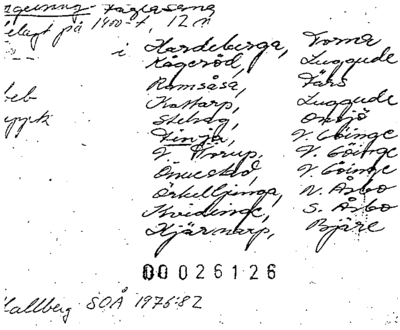 fåglasång
elagt på 1400-t, 12 n
i Hardeberga, Torna
Kågeröd, Luggude
Ramsåsa, Färs
Kattarp, Luggude
Stehag, Onsjö
Finja, V. Göinge
V. Torup, V. Göinge
Önnestad, V. Göinge
Örkelljunga, N. Åsbo
Kvidinge, S. Åsbo
Hjärnarp, Bjäre
00026126
Hallberg SOÅ 1976:82